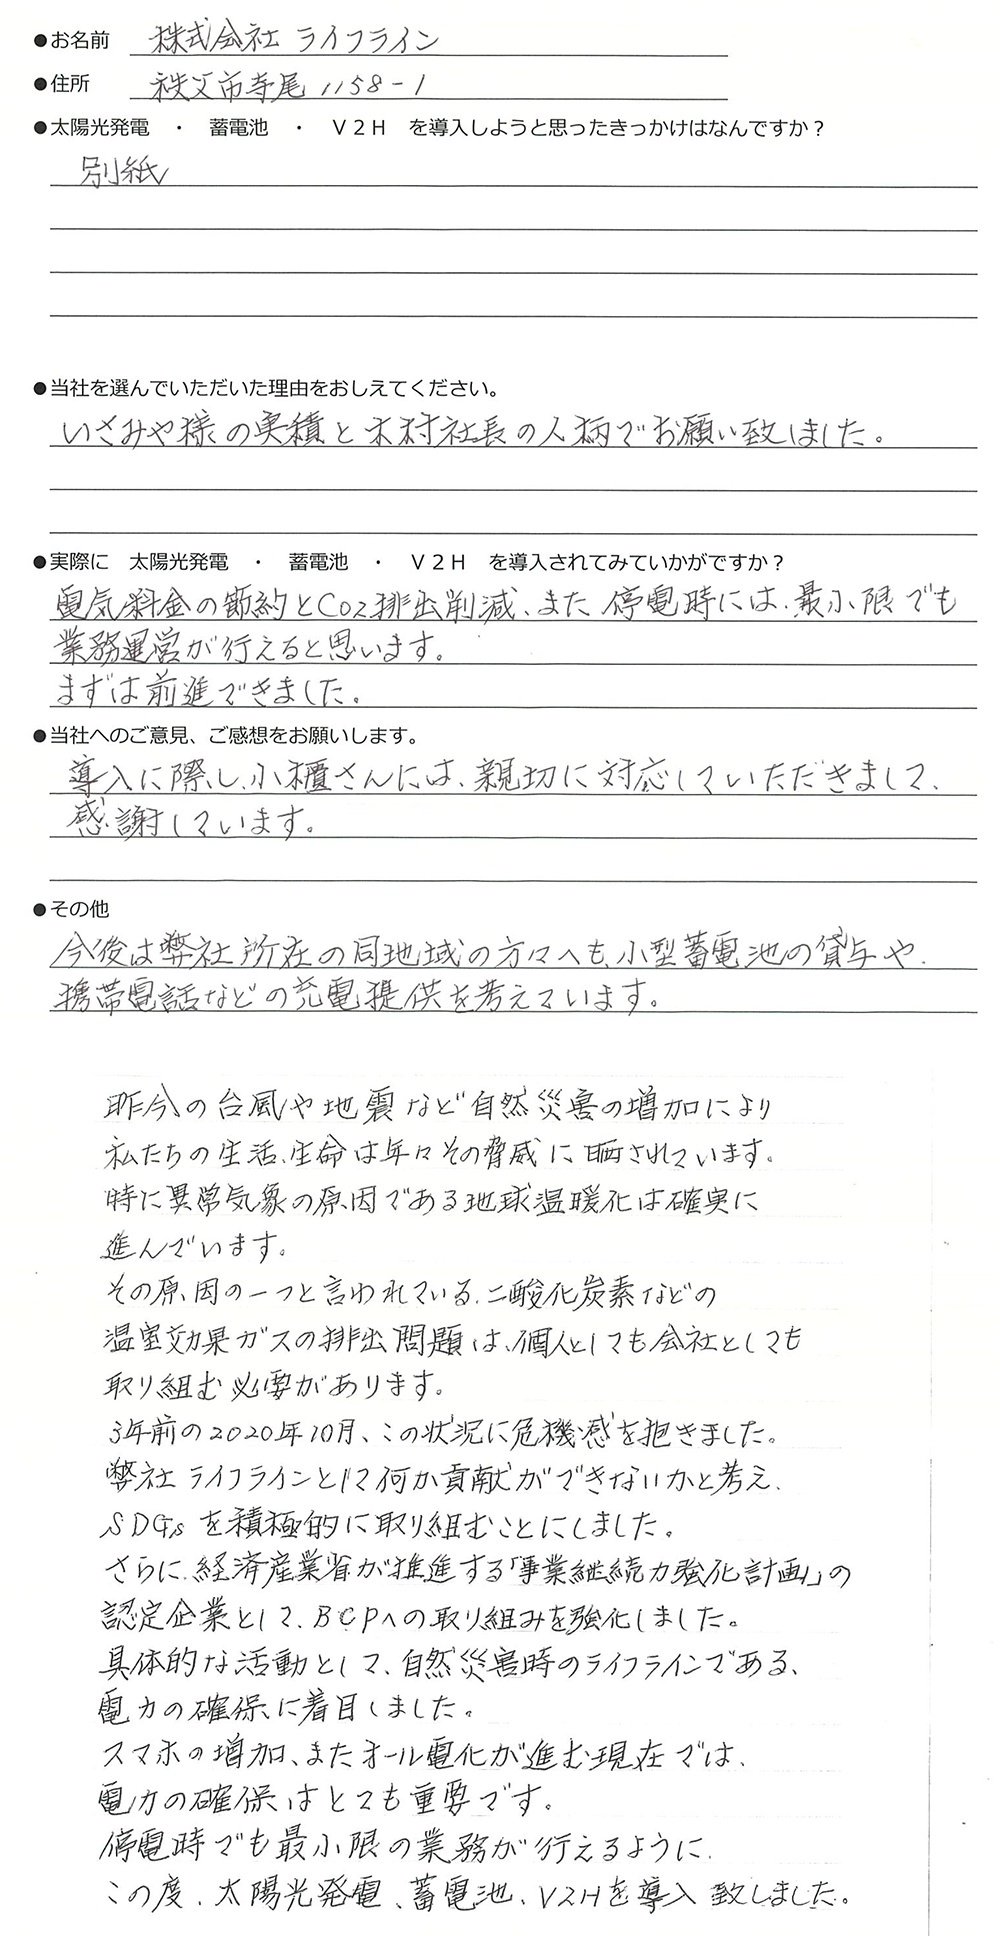 ●お名前 株式会社 ライフライン
●住所 秩父市寺尾 1158-1
●太陽光発電 ・ 蓄電池 ・ V2H を導入しようと思ったきっかけはなんですか？
別紙
●当社を選んでいただいた理由をおしえてください。
いさみや様の実積と木村社長の人柄でお願い致しました。
●実際に 太陽光発電 ・ 蓄電池 ・ V2H を導入されてみていかがですか？
電気料金の節約とCo2排出削減、また停電時には、最小限でも
業務運営が行えると思います。
まずは前進できました。
●当社へのご意見、ご感想をお願いします。
導入に際し、小櫃さんには、親切に対応していただきまして、
感謝しています。
●その他
今後は弊社所在の同地域の方々へも、小型蓄電池の貸与や、
携帯電話などの充電提供を考えています。
昨今の台風や地震など自然災害の増加により
私たちの生活、生命は年々その脅威に晒されています。
特に異常気象の原因である地球温暖化は確実に
進んでいます。
その原因の一つと言われている、二酸化炭素などの
温室効果ガスの排出問題は、個人としても会社としても
取り組む必要があります。
3年前の2020年10月、この状況に危機感を抱きました。
弊社ライフラインとして何か貢献ができないかと考え、
SDGsを積極的に取り組むことにしました。
さらに、経済産業省が推進する「事業継続力強化計画」の
認定企業として、BCPへの取り組みを強化しました。
具体的な活動として、自然災害時のライフラインである、
電力の確保に着目しました。
スマホの増加、またオール電化が進む現在では、
電力の確保はとても重要です。
停電時でも最小限の業務が行えるように、
この度、太陽光発電、蓄電池、V2Hを導入致しました。